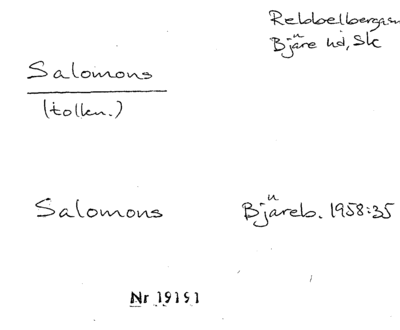 Rebbelbergasn
Bjäre hd, Sk
Salomons
(tolkn.)
Salomons Bjäreb. 1958:35
Nr 19191